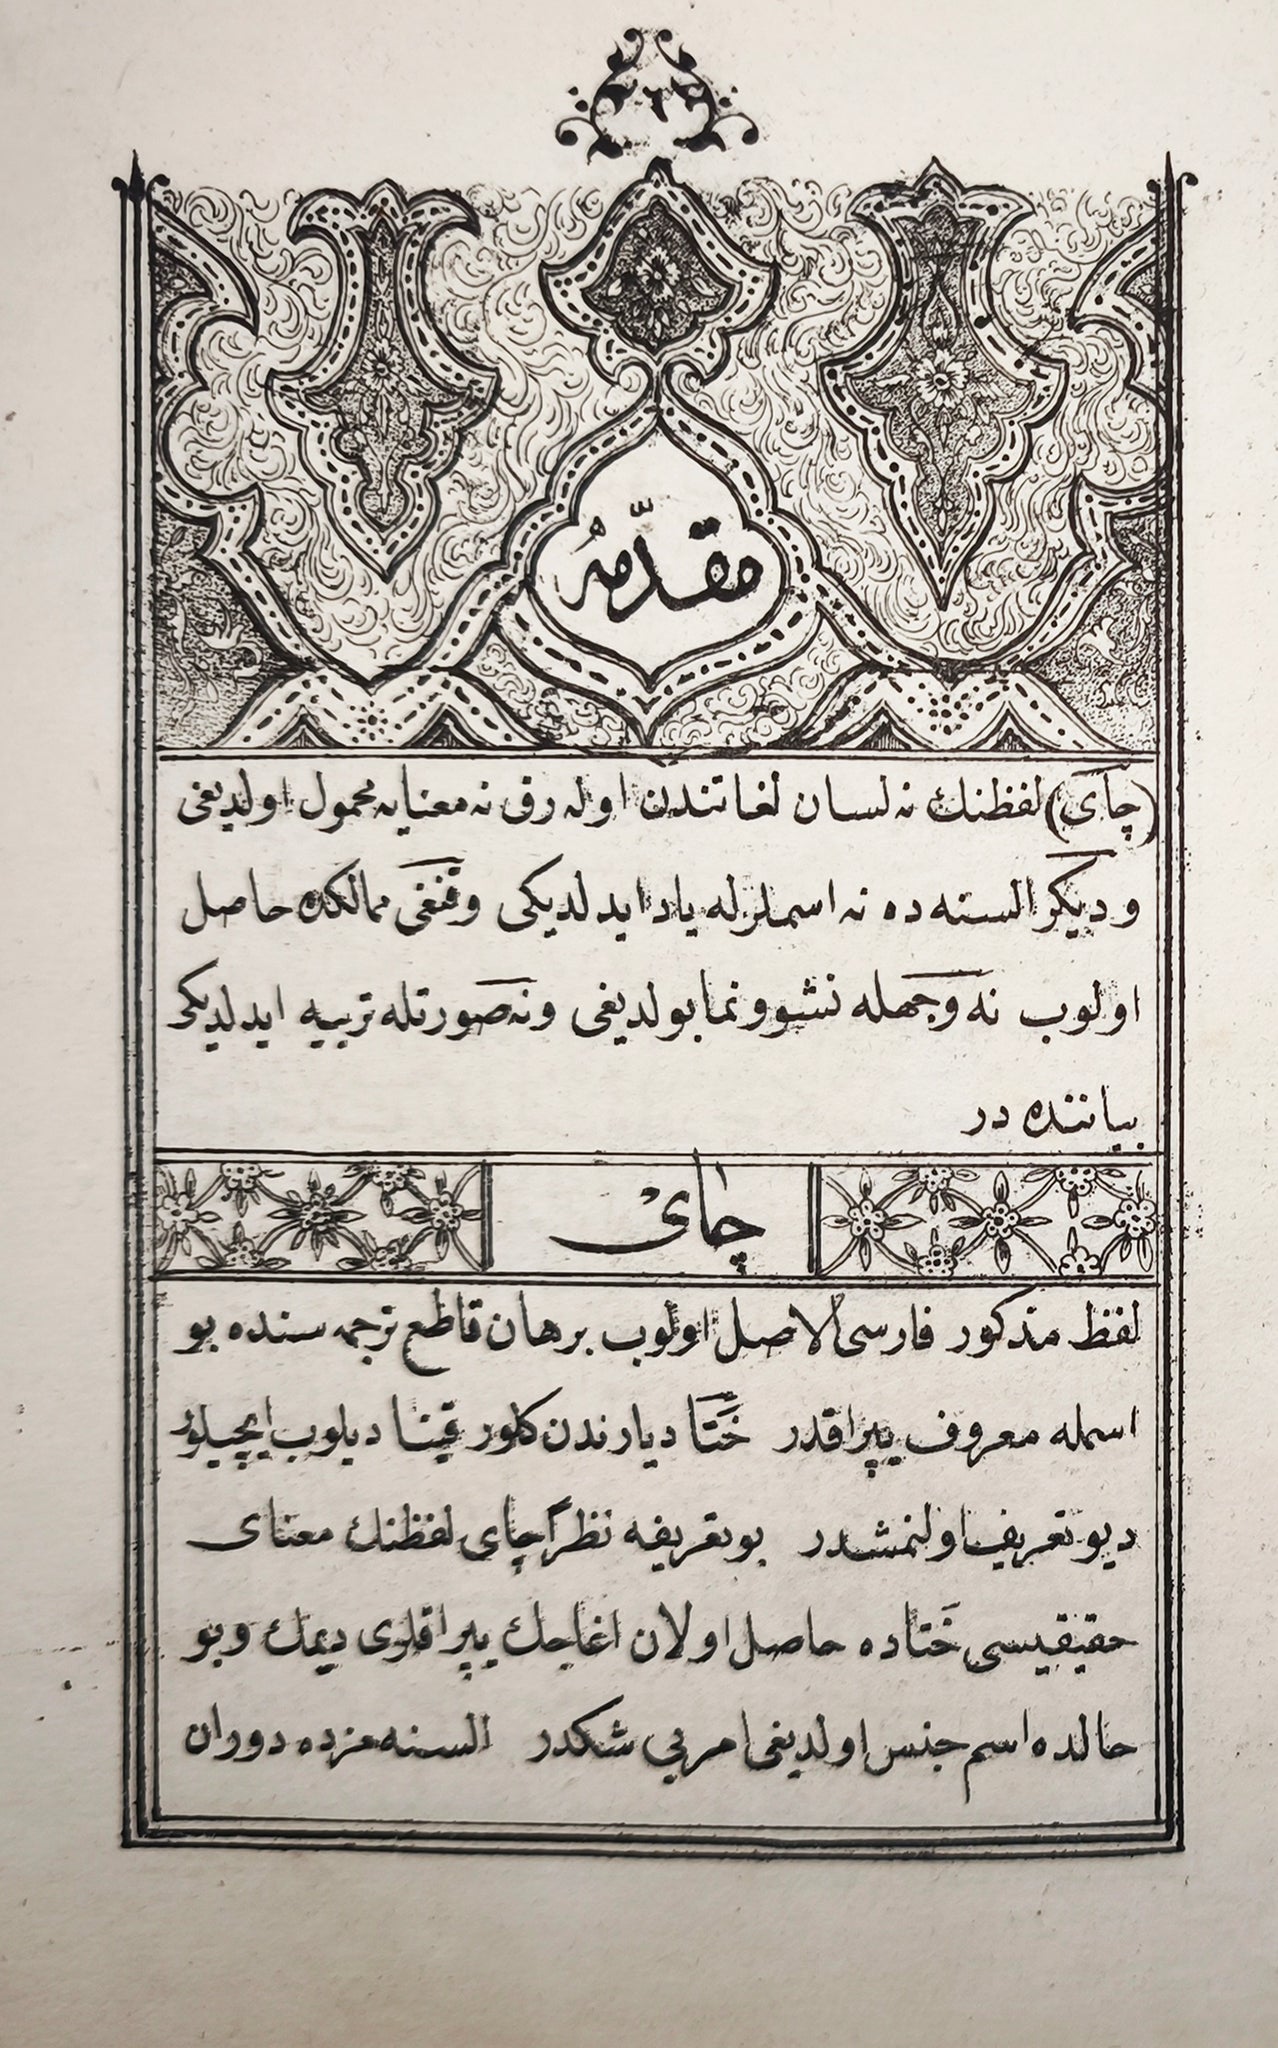 ٢
مقدّمه
(چای) لفظنك نه لسان لغاتندن اوله رق نه معنایه محمول اولدیغی
و دیكر السنه ده نه اسملرله یاد ایدلدیكی وقنغی ممالكده حاصل
اولوب نه وجهله نشو و نما بولدیغی و نه صورتله تربیه ایدلدیكی
بیاننده در
چای
لفظ مذكور فارسی الاصل اولوب برهان قاطع ترجمه سنده بو
اسمله معروف یپراقدر خَتَا دیارندن كلور قینا دیلوب ایچیلور
دیو تعریف اولنمشدر بو تعریفه نظراً چای لفظنك معنای
حقیقیسی خَتاده حاصل اولان اغاجك یپراقلری دیمك و بو
حالده اسم جنس اولدیغی امر بی شكدر السنه مزده دوران